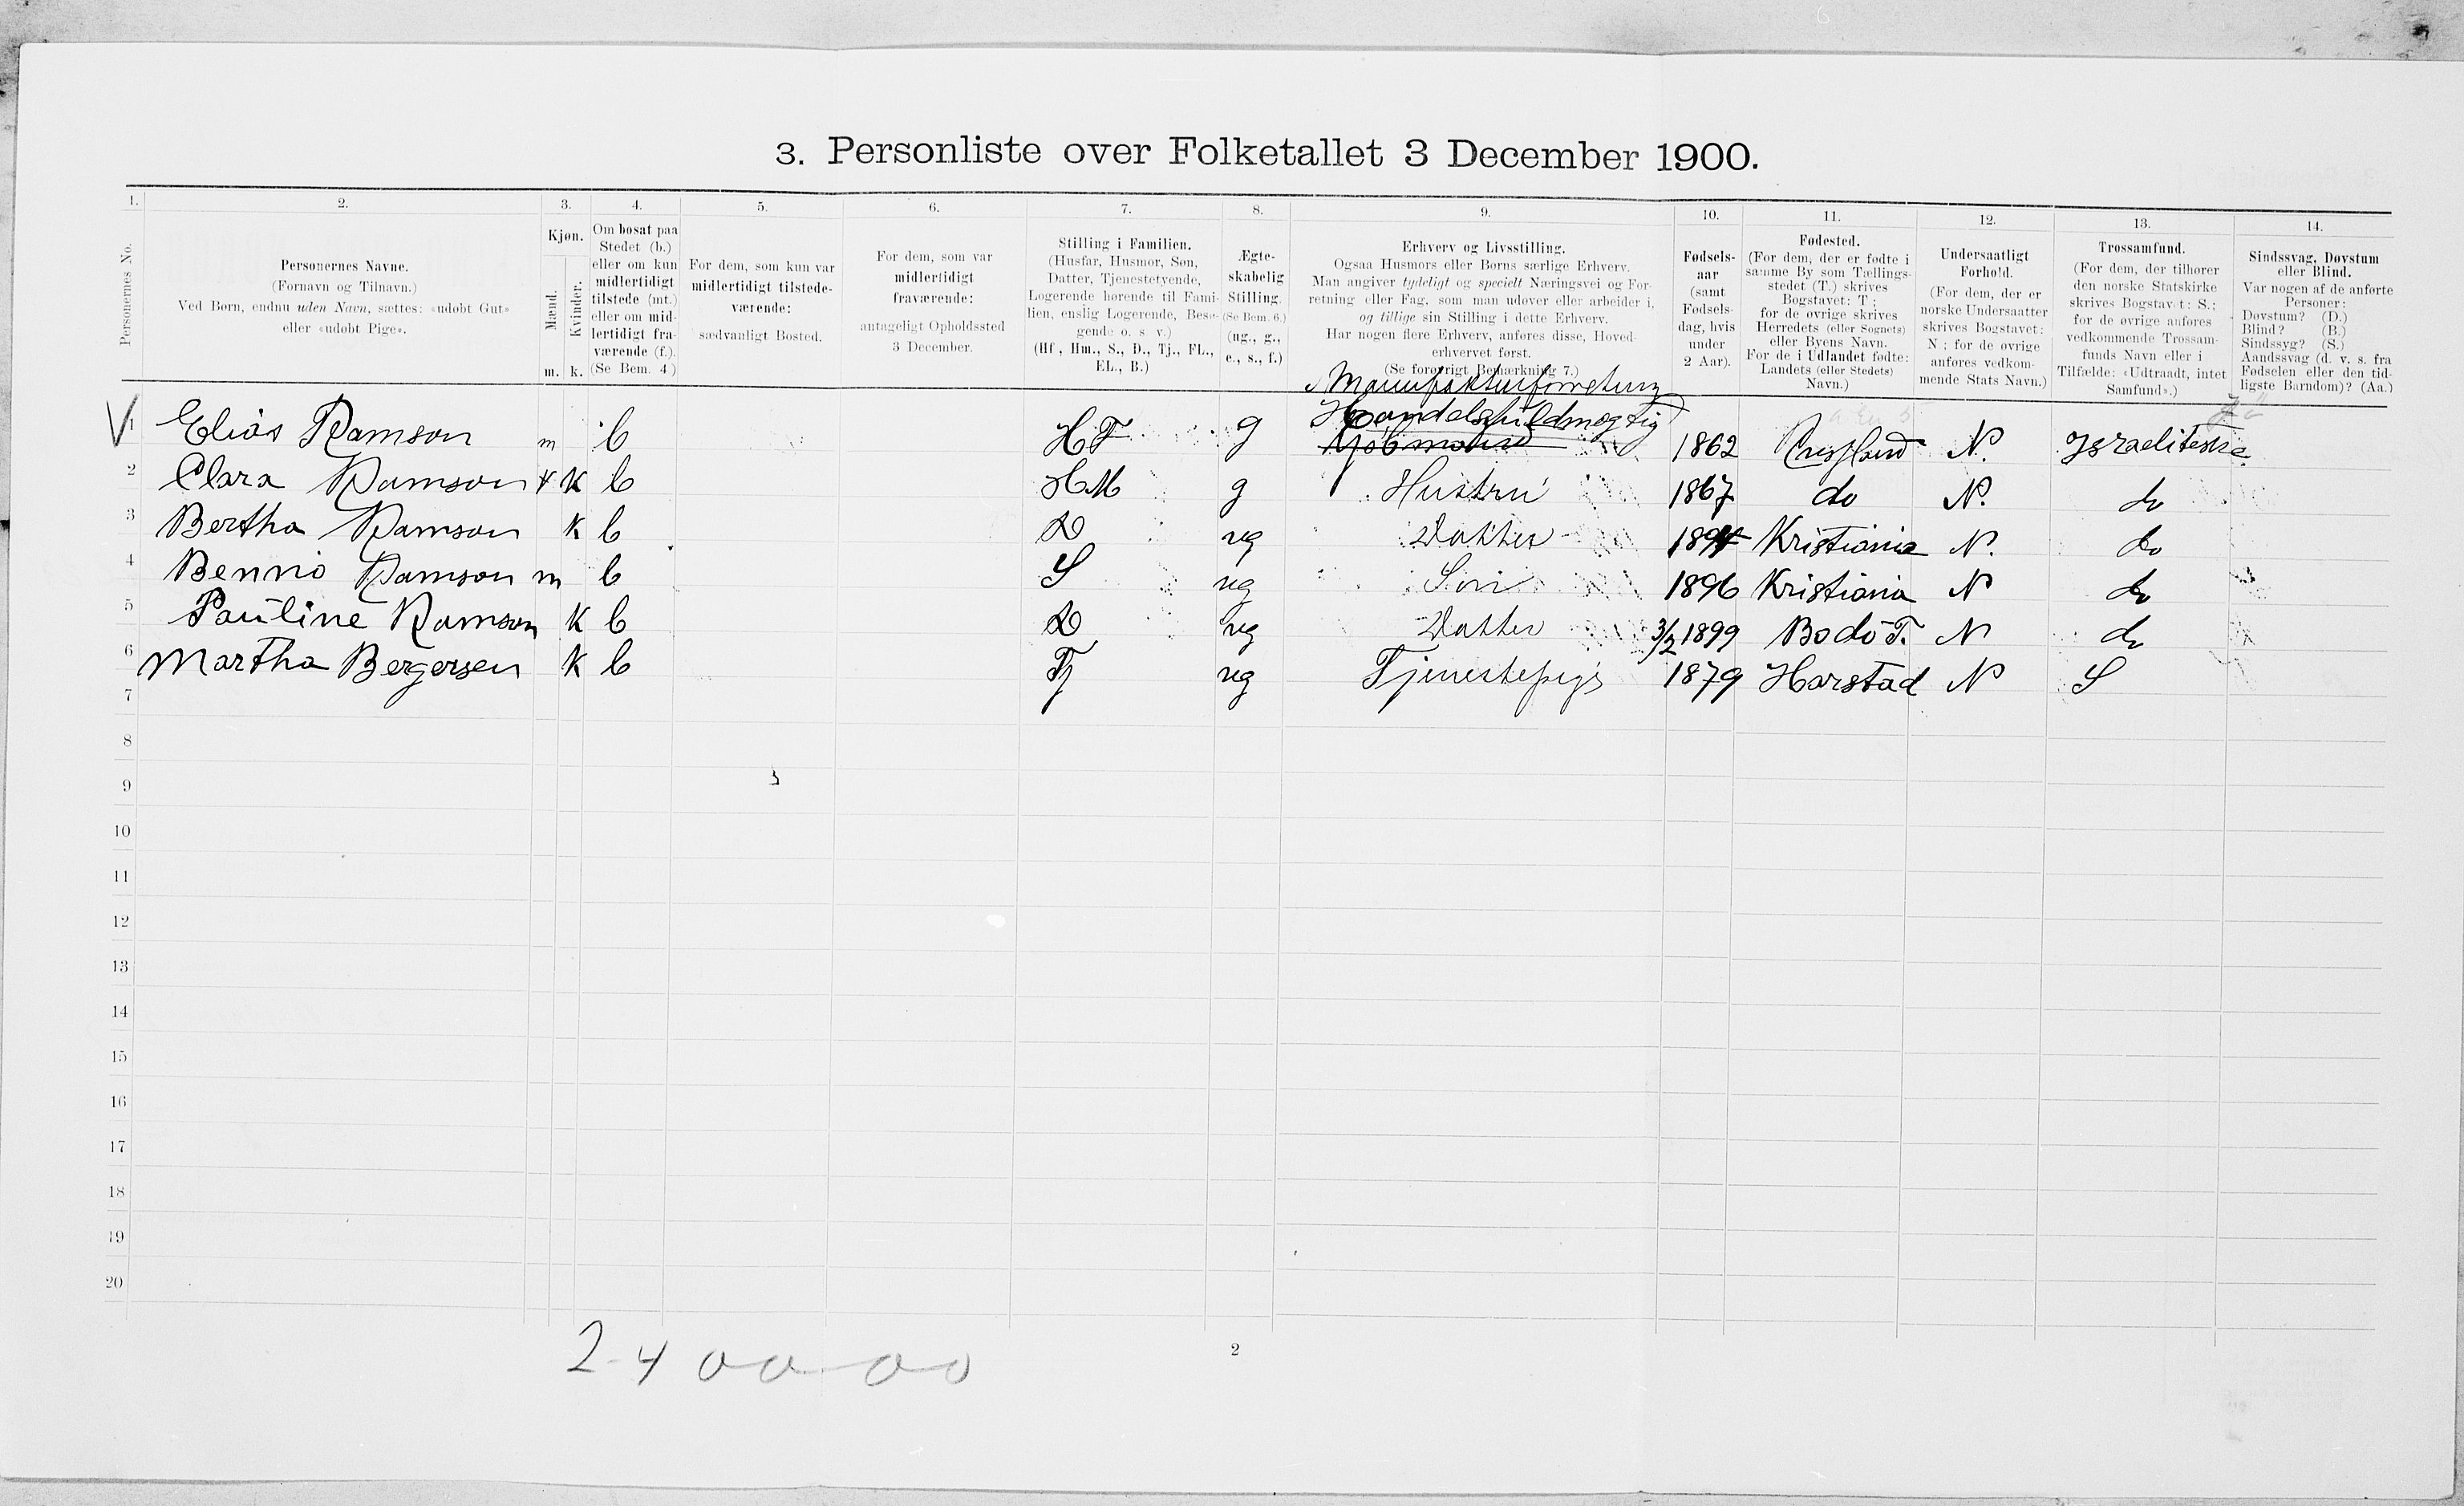 3. Personliste over Folketallet 3 December 1900.
1. 2. 3. 4. 5. 6. 7. 8. 9. 10. 11. 12. 13. 14.
Personernes No.
Personernes Navne.
(Fornavn og Tilnavn.)
Ved Børn, endnu uden Navn, sættes: «udøbt Gut»
eller «udøbt Pige».
Kjøn.
Mænd.
Kvinder.
m. k.
Om bosat paa
Stedet (b.)
eller om kun
midlertidigt
tilstede (mt.)
eller om mid-
lertidigt fra-
værende (f.).
(Se Bem. 4)
For dem, som kun var
midlertidigt tilstede-
værende:
sædvanligt Bosted.
For dem, som var
midlertidigt
fraværende:
antageligt Opholdssted
3 December.
Stilling i Familien.
(Husfar, Husmor, Søn,
Datter, Tjenestetyende,
Logerende hørende til Fami-
lien, enslig Logerende, Besø-
gende o. s v.)
(Hf, Hm., S., D., Tj., FL.,
EL., B.)
Ægte-
skabelig
Stilling.
(Se Bem. 6.)
(ug., g.,
e., s., f.)
Erhverv og Livsstilling.
Ogsaa Husmors eller Børns særlige Erhverv.
Man angiver tydeligt og specielt Næringsvei og For-
retning eller Fag, som man udøver eller arbeider i,
og tillige sin Stilling i dette Erhverv.
Har nogen flere Erhverv, anføres disse, Hoved-
erhvervet først.
(Se forøvrigt Bemærkning 7.)
Fødsels-
aar
(samt
Fødsels-
dag, hvis
under
2 Aar).
Fødested.
(For dem, der er fødte i
samme By som Tællings-
stedet (T.) skrives
Bogstavet: T;
for de øvrige skrives
Herredets (eller Sognets)
eller Byens Navn.
For de i Udlandet fødte:
Landets (eller Stedets)
Navn.)
Undersaatligt
Forhold.
(For dem, der er
norske Undersaatter
skrives Bogstavet:
N; for de øvrige
anføres vedkom-
mende Stats Navn.)
Trossamfund.
(For dem, der tilhører
den norske Statskirke
skrives Bogstavet: S.;
for de øvrige anføres
vedkommende Trossam-
funds Navn eller i
Tilfælde: «Udtraadt, intet
Samfund».)
Sindssvag, Døvstum
eller Blind.
Var nogen af de anførte
Personer:
Døvstum? (D.)
Blind? (B.)
Sindssyg? (S.)
Aandssvag (d. v. s. fra
Fødselen eller den tid-
ligste Barndom)? (Aa.)
Manufakturforretning
Handelsfuldmægtig
1 Elias Ramson m b HF g Kjöbmand 1862 Rusland N. Israeliteske
2 Clara Ramson K b HM g Hustru 1867 do N. do
3 Bertha Ramson K b D ug Datter 1894 Kristiania N. do
4 Benno Ramson m b S ug Son 1896 Kristiania N do
5 Pauline Ramson K b D ug Datter 3/2 1899 Bodö T. N do
6 Martha Bergersen K b Tj ug Tjenestepige 1879 Harstad N S
7
8
9
10
11
12
13
14
15
16
17
18
19
20
2-4 0 0 0 0
2